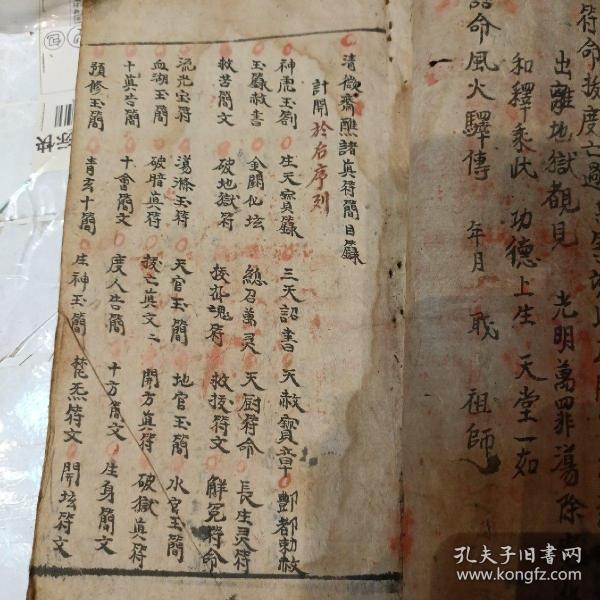 符命拔度亡
出離地獄覩見　光明萬罪蕩除
和釋乘此　功德上生　天堂一如
命風火驛傳　年月　職　祖師
清微齋醮諸真符簡目錄
計開於右序列
神虎玉劄　生天寶籙　三天詔書　天赦寶章　酆都勅赦
玉籙赦書　金闕仙坛　總召萬灵　天厨符命　長生灵符
救苦簡文　破地獄符　拔亡魂符　救援符文　解冤符命
流光宝符　蕩滌玉符　天官玉簡　地官玉簡　水官玉簡
血湖玉簡　破暗真符　拔亡真文二　開方真符　破獄真符
十真告簡　十會簡文　度人告簡　十方簡文　生身簡文
預修玉簡　青玄十簡　生神玉簡　梵炁符文　開坛符文
孔夫子旧書网
www.kongfz.com